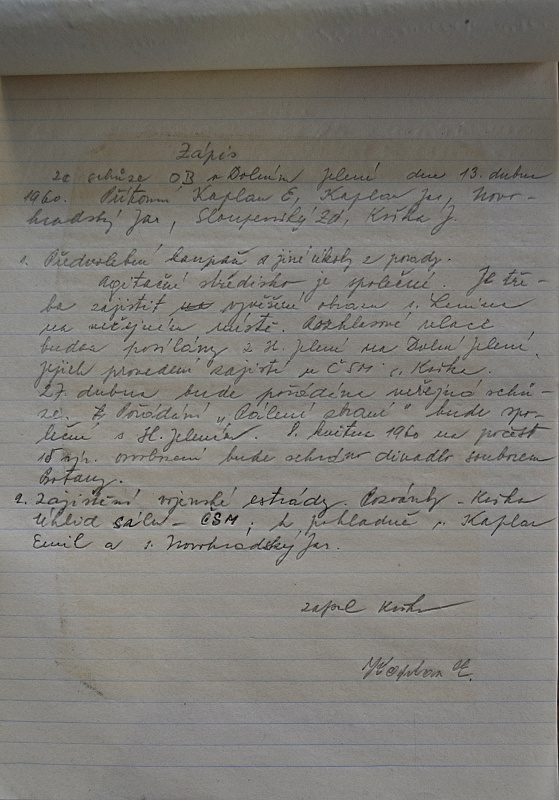 Zápis
ze schůze OB v Dolním Jelení dne 13. dubna
1960. Přítomni Kaplan E, Kaplan Jar, Novo-
hradský Jar, Sloupenský Zd, Krška J.
1. Předvolební kampaň a jiné úkoly z porady.
Agitační středisko je společné. Je tře-
ba zajistit vyvěšení obrazu s. Lenina
na veřejném místě. Rozhlasové relace
budou posílány z H. Jelení na Dolní Jelení,
jejich provedení zajistí u ČSM s. Krška.
27. dubna bude pořádána veřejná schů-
ze. Pořádání „Pálení straní" bude spo-
lečné s H. Jelením. 8. května 1960 na počest
15 výr. osvobození bude sehráno divadlo souborem
2. Zajištění vojenské estrády. Pozvánky - Krška
Úklid sálu - ČSM, k pokladně s. Kaplan
Emil a s. Novohradský Jar.
zapsal Krška
Kaplan E.